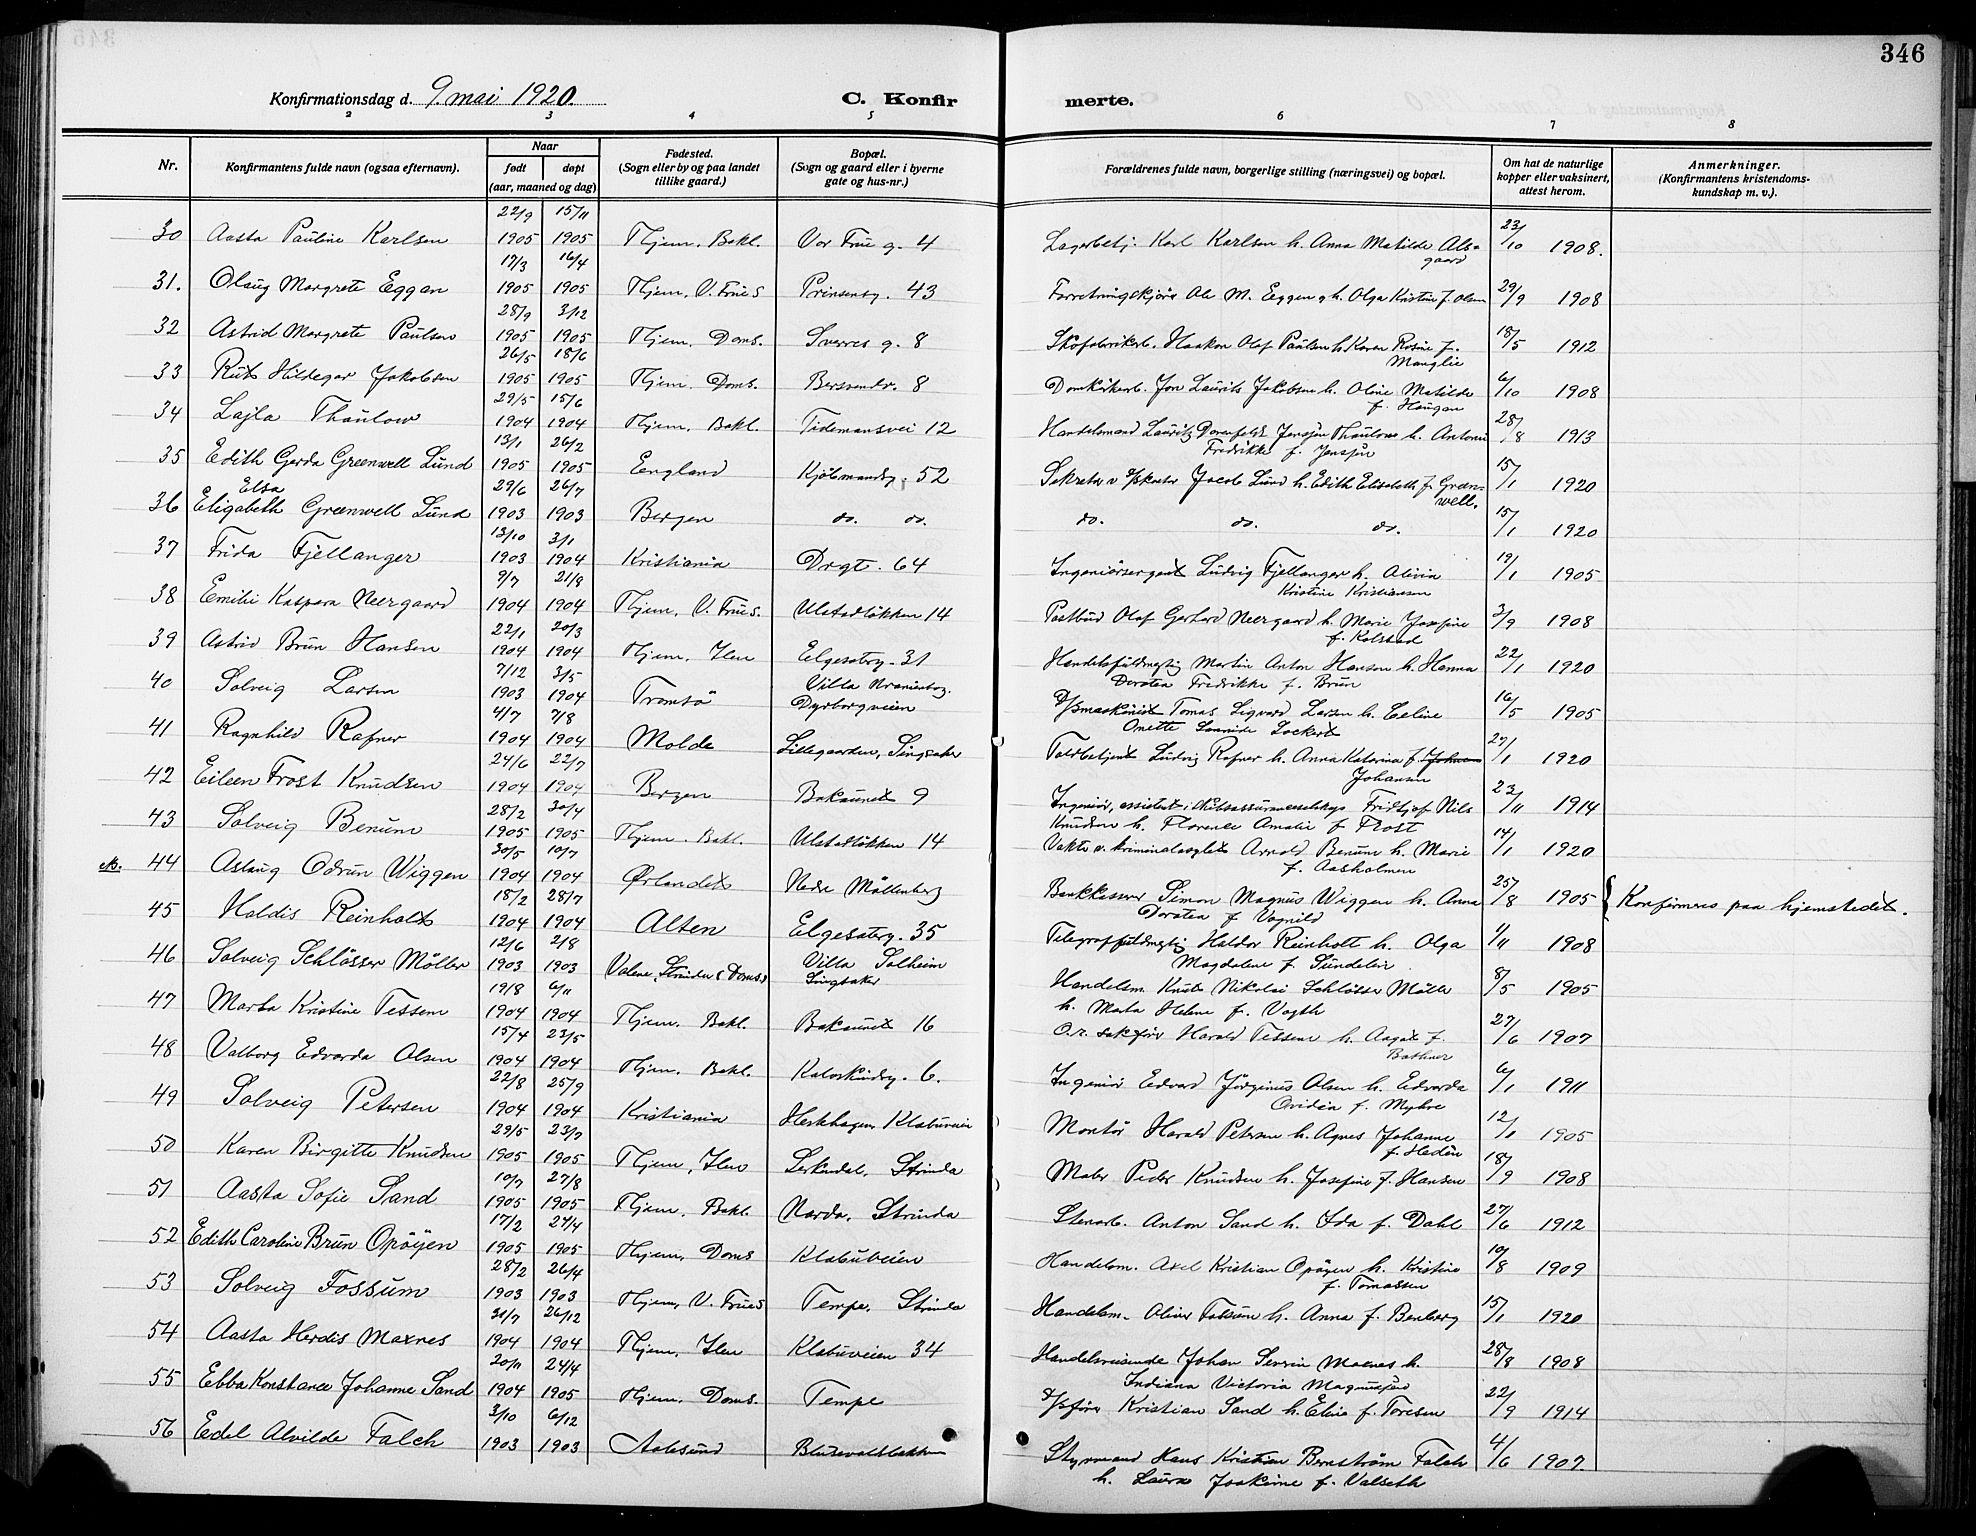 346
Konfirmationsdag d. 9 mai 1920.
C. Konfir
merte.
2 3 4 5 6 7 8
Nr.
Konfirmantens fulde navn (ogsaa efternavn).
Naar
født døpt
(aar, maaned og dag)
Fødested.
(Sogn eller by og paa landet
tillike gaard.)
Bopæl.
(Sogn og gaard eller i byerne
gate og hus-nr.)
Forældrenes fulde navn, borgerlige stilling (næringsvei) og bopæl.
Om hat de naturlige
kopper eller vaksinert,
attest herom.
Anmerkninger.
(Konfirmantens kristendoms-
kundskap m. v.).
22/9 15/11
30 Aasta Pauline Karlsen 1905 1905 Thjem. Bakl. Vor Frue g. 4 Lagerbetj. Karl Karlsen h. Anna Matilde Als- 23/10 1908.
gaard
17/3 16/4
31. Olaug Margrete Eggen 1905 1905 Thjem, V. Frues Prinsensg. 43 Forretningskjører Ole M. Eggen og h. Olga Kristine f. Olsen 29/9 1908
28/9 3/12
32 Astrid Margrete Paulsen 1905 1905 Thjem. Doms. Sverres g. 8 Skofabrikarb. Haakon Olaf Paulsen h. Karen Rosine f. 18/5 1912
Manglie
26/5 18/6
33 Rut Hildegar Jakobsen 1905 1905 Thjem. Doms. Berssendr. 8 Domkirkearb. Jon Laurits Jakobsen h. Oline Matilde 6/10 1908
f. Haugan
29/5 15/6
34 Lajla Thaulow 1904 1904 Thjem. Bakl. Tidemansvei 12 Handelsmand Lauritz Dorenfeldt Jenssen Thaulow h. Antonie 28/8 1913
Fredrikke f. Jenssen
13/1 26/2
35 Edith Gerda Greenwell Lund 1905 1905 England Kjøbmandsg. 52 Sekretær v. Jacob Lund h. Edith Elisabeth f. Green- 15/1 1920
well.
29/6 26/7
36 Elsa Elizabeth Greenwell Lund 1903 1903 Bergen do. do. do. do. do. 15/1 1920
13/10 3/1
37 Frida Fjellanger 1903 1904 Kristiania Drgt. 64 Ingeniørsergent Ludvig Fjellanger h. Alivia 19/1 1905
Kristine Kristiansen
9/7 21/8
38 Emilie Kaspara Neergaard 1904 1904 Thjem, V. Frues. Ulstadløkken 14 Postbud Olaf Gerhard Neergaard h. Marie Josefine 3/9 1908
f. Kolstad
22/1 20/3
39 Astrid Brun Hansen 1904 1904 Thjem, Ilen Elgesetrg. 31 Handelsfuldmegtig Martin Anton Hansen h. Hanna 22/1 1920
Dorotea Fredrikke f. Brun
7/12 3/5
40 Solveig Larsen 1903 1904 Tromsø Villa Kranienborg.
Dyrborgveien D/smaskinist Tomas Sigvard Larsen h. Celine 16/5 1905
Onette Lockert
4/7 7/8
41 Ragnhild Rafner 1904 1904 Molde Lillegaarden, Singsaker Toldbetjent Ludvig Rafner h. Anna Katarina f. 27/1 1920
Johansen
24/6 22/7
42 Eileen Frost Knudsen 1904 1904 Bergen Bakaunet 9 Ingeniør, assistent i Fridtjof Nils 23/11 1914
Knudsen h. Florence Amalie f. Frost
28/2 30/4
43 Solveig Benum 1905 1905 Thjem. Bakl. Ulstadløkken 14 Vakte v. kriminalasylet Arnold Benum h. Marie 14/1 1920
f. Aasholmen
30/5 10/7
44 Aslaug Odrun Wiggen 1904 1904 Ørlandet Nedre Møllenberg Bankkasserer Simon Magnus Wiggen h. Anna 25/8 1905 { Konfirmeres paa hjemstedet.
Dorotea f. Vognild
18/2 28/7
45 Haldis Reinholt 1904 1904 Alten Elgesetrg. 35 Telegraffuldmegtig Haldor Reinholt h. Olga 1/11 1908
Magdalene f. Sundelin
12/6 2/8
46 Solveig Schlösser Möller 1903 1903 Valene, Strinden (Doms) Villa Solheim
Singsaker Handelsm. Knut Nikolai Schlösser Möller 8/5 1905
h. Marta Helene f. Vogth
19/8 6/11
47 Marta Kristine Tessem 1904 1904 Thjem. Bakl. Bakaunet 16 O.r. sakfører Harald Tessem h. Aagot f. 27/6 1907
Bathner
15/4 23/5
48 Valborg Edvarda Olsen 1904 1904 Thjem. Bakl. Kalvskindsg. 6. Ingeniør Edvard Jörginus Olsen h. Edvarda 6/1 1911
Ovidia f. Myhre
22/8 25/9
49 Solveig Petersen 1904 1904 Kristiania Heskhagen Klabuveien Montør Harald Petersen h. Agnes Johanne 12/10 1905
f. Hedén
29/5 23/7
50 Karen Birgitte Knudsen 1905 1905 Thjem, Ilen Lerkendal, Strinda Maler Peder Knudsen h. Josefine f. Hansen 18/9 1908
10/7 27/8
51 Aasta Sofie Sand 1905 1905 Thjem. Bakl. Narda, Strinda Stenarb. Anton Sand h. Ida f. Dahl 27/6 1912
17/2 24/4
52 Edith Caroline Brun Opöyen 1905 1905 Thjem, Doms Klabuveien Handelsm. Axel Kristian Opöyen h. Kristine 10/8 1909
f. Tomassen
28/2 26/4
53 Solveig Fossum 1903 1903 Thjem, V. Frues Tempe, Strinda Handelsm. Oliver Fossum h. Anna f. Benberg 15/1 1920
31/7 26/12
54 Aasta Herdis Moxnes 1904 1904 Thjem, Ilen Klabuveien 34 Handelsreisende Johan Severin Moxnes h. 28/8 1908
Indiana Victoria
20/11 24/4
55 Ebba Konstance Johanne Sand 1904 1905 Thjem, Doms. Tempe D/sfører Kristian Sand h. Elise f. Toresen 22/9 1914
3/10 6/12
56 Edel Alvilde Falch 1903 1903 Aalesund Blusevoldsbakken Styrmand Hans Kristian Bernström Falch 4/6 1907.
h. Laura Joakime f. Valseth